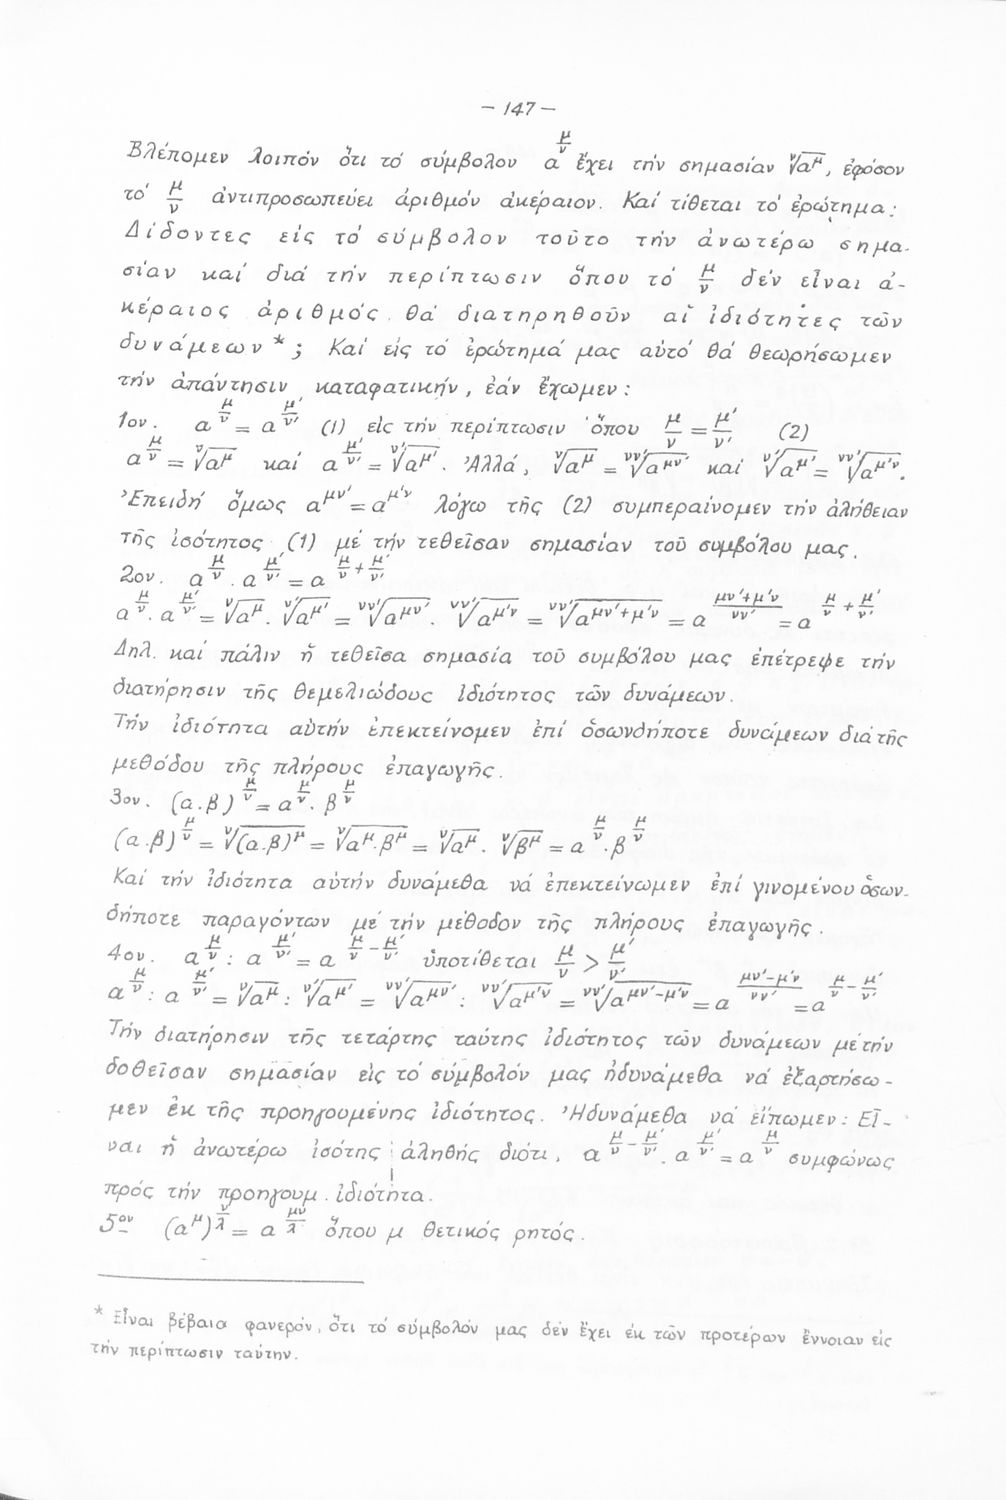 - 147 -
Βλέπομεν λοιπόν ὅτι τό σύμβολον α^{μ/ν} ἔχει τήν σημασίαν ᵛ√α^μ, ἐφόσον
τό μ/ν ἀντιπροσωπεύει ἀριθμόν ἀκέραιον. Καί τίθεται τό ἐρώτημα:
Δίδοντες εἰς τό σύμβολον τοῦτο τήν ἀνωτέρω σημα-
σίαν καί διά τήν περίπτωσιν ὅπου τό μ/ν δέν εἶναι ἀ-
κέραιος ἀριθμός θά διατηρηθοῦν αἱ ἰδιότητες τῶν
δυνάμεων*; Καί εἰς τό ἐρώτημά μας αὐτό θά θεωρήσωμεν
τήν ἀπάντησιν καταφατικήν, ἐάν ἔχωμεν:
1ον. α^{μ/ν} = α^{μ'/ν'} (1) εἰς τήν περίπτωσιν ὅπου μ/ν = μ'/ν' (2)
α^{μ/ν} = ᵛ√α^μ καί α^{μ'/ν'} = ᵛ'√α^{μ'}. Ἀλλά, ᵛ√α^μ = ᵛᵛ'√α^{μν'} καί ᵛ'√α^{μ'} = ᵛᵛ'√α^{μ'ν}.
Ἐπειδή ὅμως α^{μν'} = α^{μ'ν} λόγω τῆς (2) συμπεραίνομεν τήν ἀλήθειαν
τῆς ἰσότητος (1) μέ τήν τεθεῖσαν σημασίαν τοῦ συμβόλου μας.
2ον. α^{μ/ν} . α^{μ'/ν'} = α^{μ/ν + μ'/ν'}
α^{μ/ν} . α^{μ'/ν'} = ᵛ√α^μ . ᵛ'√α^{μ'} = ᵛᵛ'√α^{μν'} . ᵛᵛ'√α^{μ'ν} = ᵛᵛ'√α^{μν'+μ'ν} = α^{(μν'+μ'ν)/νν'} = α^{μ/ν + μ'/ν'}
Δηλ. καί πάλιν ἡ τεθεῖσα σημασία τοῦ συμβόλου μας ἐπέτρεψε τήν
διατήρησιν τῆς θεμελιώδους ἰδιότητος τῶν δυνάμεων.
Τήν ἰδιότητα αὐτήν ἐπεκτείνομεν ἐπί ὁσωνδήποτε δυνάμεων διά τῆς
μεθόδου τῆς πλήρους ἐπαγωγῆς.
3ον. (α.β)^{μ/ν} = α^{μ/ν} . β^{μ/ν}
(α.β)^{μ/ν} = ᵛ√(α.β)^μ = ᵛ√α^μ.β^μ = ᵛ√α^μ . ᵛ√β^μ = α^{μ/ν} . β^{μ/ν}
Καί τήν ἰδιότητα αὐτήν δυνάμεθα νά ἐπεκτείνωμεν ἐπί γινομένου ὁσων-
δήποτε παραγόντων μέ τήν μέθοδον τῆς πλήρους ἐπαγωγῆς.
4ον. α^{μ/ν} : α^{μ'/ν'} = α^{μ/ν - μ'/ν'} ὑποτίθεται μ/ν > μ'/ν'
α^{μ/ν} : α^{μ'/ν'} = ᵛ√α^μ : ᵛ'√α^{μ'} = ᵛᵛ'√α^{μν'} : ᵛᵛ'√α^{μ'ν} = ᵛᵛ'√α^{μν'-μ'ν} = α^{(μν'-μ'ν)/νν'} = α^{μ/ν - μ'/ν'}
Τήν διατήρησιν τῆς τετάρτης ταύτης ἰδιότητος τῶν δυνάμεων μέ τήν
δοθεῖσαν σημασίαν εἰς τό σύμβολόν μας ἠδυνάμεθα νά ἐξαρτήσω-
μεν ἐκ τῆς προηγουμένης ἰδιότητος. Ἠδυνάμεθα νά εἴπωμεν: Εἶ-
ναι ἡ ἀνωτέρω ἰσότης ἀληθής διότι, α^{μ/ν - μ'/ν'} . α^{μ'/ν'} = α^{μ/ν} συμφώνως
πρός τήν προηγουμ. ἰδιότητα.
5ον (α^μ)^{ν/λ} = α^{μν/λ} ὅπου μ θετικός ρητός.
* Εἶναι βέβαια φανερόν, ὅτι τό σύμβολόν μας δέν ἔχει ἐκ τῶν προτέρων ἔννοιαν εἰς
τήν περίπτωσιν ταύτην.